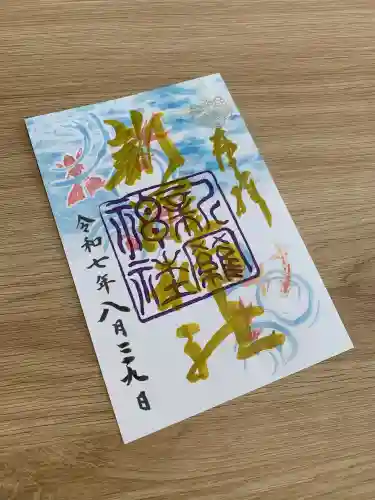 奉拝
新羅神社
新羅神社
令和七年 八月二十九日